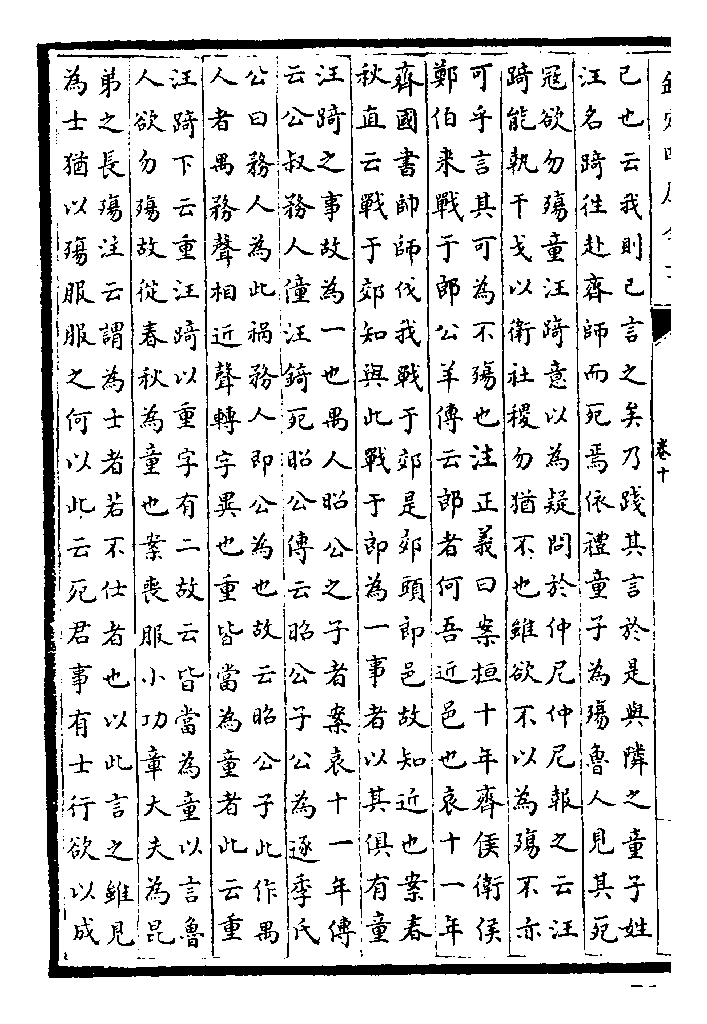 卷十
己也云我則已言之矣乃踐其言於是與隣之童子姓
汪名踦徃赴齊師而死焉依禮童子為殤魯人見其死
冠欲勿殤童汪踦意以為疑問於仲尼仲尼報之云汪
踦能執干戈以衛社稷勿猶不也雖欲不以為殤不亦
可乎言其可為不殤也注正義曰案桓十年齊侯衛侯
鄭伯来戰于郎公羊傳云郎者何吾近邑也哀十一年
齊國書帥師伐我戰于郊是郊頭即邑故知近也案春
秋直云戰于郊知與此戰于郎為一事者以其俱有童
汪踦之事故為一也禺人昭公之子者案哀十一年傳
云公叔務人僮汪錡死昭公傳云昭公子公為逐季氏
公曰務人為此禍務人即公為也故云昭公子此作禺
人者禺務聲相近聲轉字異也重皆當為童者此云重
汪踦下云重汪踦以重字有二故云皆當為童以言魯
人欲勿殤故從春秋為童也案喪服小功章大夫為昆
弟之長殤注云謂為士者若不仕者也以此言之雖見
為士猶以殤服服之何以此云死君事有士行欲以成